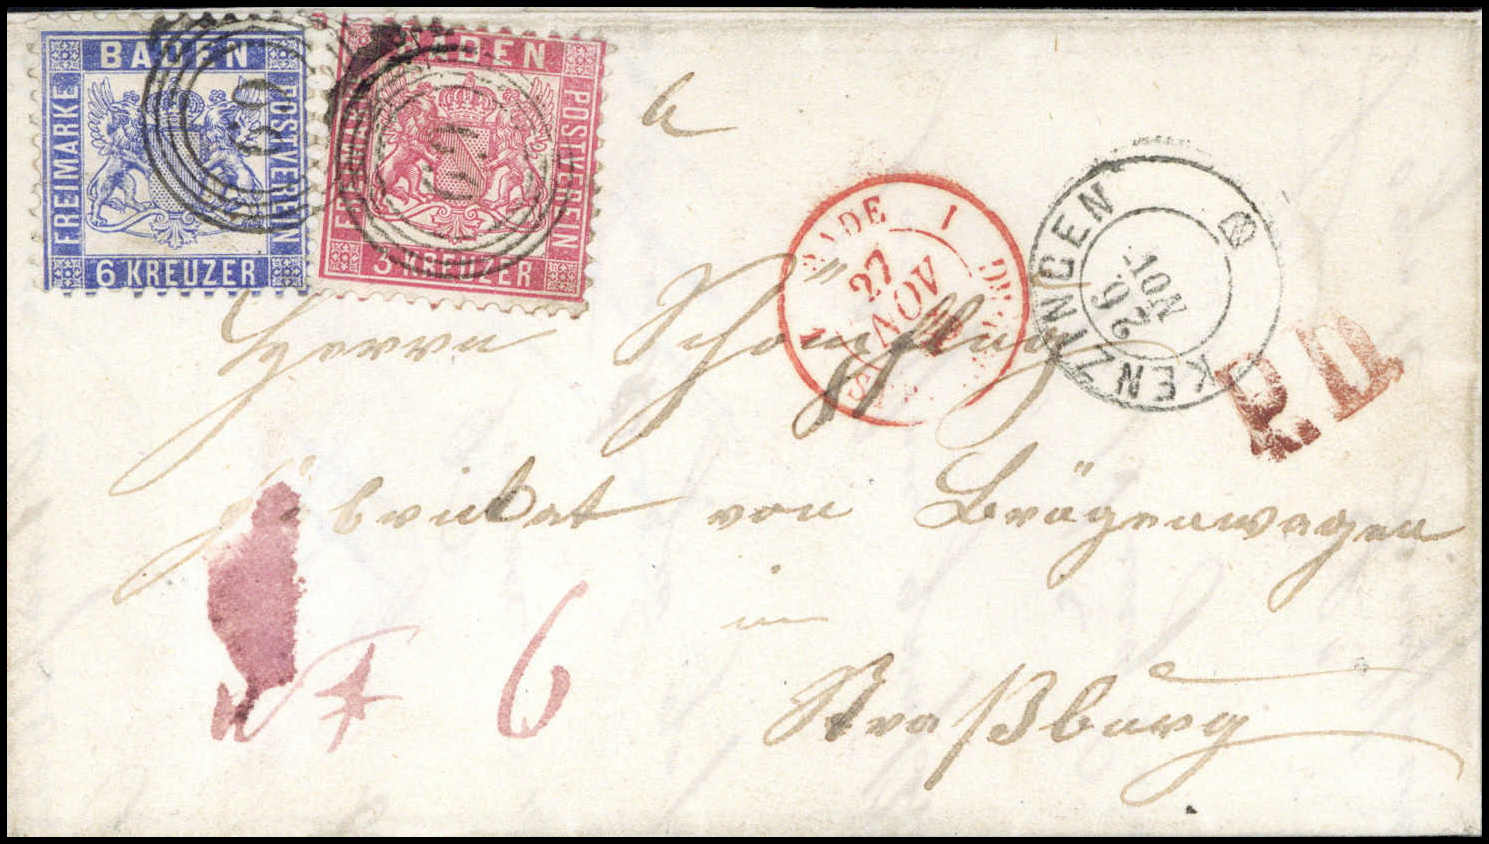 BADEN
FREIMARKE
POSTVEREIN
6 KREUZER
BADEN
FREIMARKE
POSTVEREIN
3 KREUZER
69
69
BADE 1
27
NOV
KENZINGEN
26
Nov
P.D.
Herrn
von
in
Straßburg
6